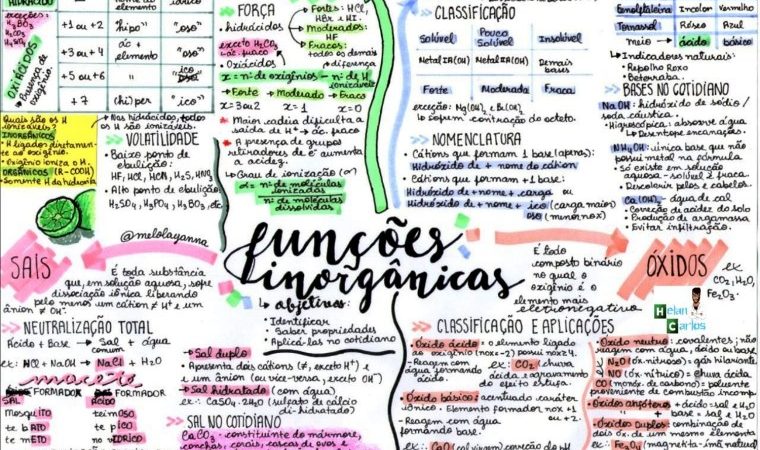 HIDRÁCIDO
nome do
elemento
ídrico
exceções:
H₃BO₃
H₂CO₃
H₄SiO₄
OXIÁCIDOS
Presença de
oxigênio.
+1 ou +2
"hipo"
"oso"
+3 ou +4
ác +
elemento
"oso"
+5 ou +6
"ico"
+7
(hi)per
"ico"
Quais são os H
ionizáveis?
INORGÂNICOS
H ligados diretamen-
te ao oxigênio.
Oxigênio ioniza o H.
ORGÂNICOS (R-COOH)
Somente H da hidroxila
Nos hidrácidos, todos
os H são ionizáveis.
VOLATILIDADE
Baixo ponto de
ebulição:
HF, HCl, HCN, H₂S, HNO₃
Alto ponto de ebulição:
H₂SO₄, H₃PO₄, H₃BO₃, etc.
@melolayanna
FORÇA
hidrácidos
exceto H₂CO₃
→ ác. fraco
Oxiácidos
Fortes: HCl,
HBr e HI.
Moderados:
HF
Fracos:
todos os demais
diferença
x = nº de oxigênios - nº de H
ionizáveis
Forte → Moderado → Fraco
x = 3 ou 2 x = 1 x = 0
Maior cadeia dificulta a
saída de H⁺ → ác. fraco
A presença de grupos
retiradores de e⁻ aumenta
a acidez.
Grau de ionização (α)
α = nº de moléculas
ionizadas
nº de moléculas
dissolvidas
CLASSIFICAÇÃO
Solúvel
Pouco
Solúvel
Insolúvel
Metal IA (OH)
Metal IIA (OH)
Demais
bases
Forte
Moderada
Fraca
exceção: Mg(OH)₂ e Be(OH)₂
↳ Sofrem contração do octeto.
NOMENCLATURA
Cátions que formam 1 base (apenas):
Hidróxido de + nome do cátion
Cátions que formam +1 base:
Hidróxido de + nome + carga ou
Hidróxido de + nome + ico (carga maior)
oso (menor nox)
Fenolftaleína Incolor Vermelho
Tornassol Róseo Azul
meio → ácido básico
Indicadores naturais:
• Repolho Roxo
• Beterraba.
BASES NO COTIDIANO
NaOH: hidróxido de sódio/
soda cáustica.
• Higroscópica: absorve água
↳ Desentope encanações.
NH₄OH: única base que não
possui metal na fórmula
• Só existe em solução
aquosa - solúvel e fraca.
• Descolorir pelos e cabelos.
Ca(OH)₂ - água de cal
• Correção de acidez do solo
• Produção de argamassa
• Evitar infiltração.
funções
inorgânicas
↳ objetivos:
Identificar
Saber propriedades
Aplicá-las no cotidiano
SAIS
É toda substância
que, em solução aquosa, sofre
dissociação iônica liberando
pelo menos um cátion ≠ H⁺ e um
ânion ≠ OH⁻.
NEUTRALIZAÇÃO TOTAL
Ácido + Base → Sal + água
comum
ex: HCl + NaOH → NaCl + H₂O
macete
FORMADOR
FORMADOR
SAL
ÁCIDO
Mosquito
teimoso
te bato
te pico
te meto
no vidrico
Sal duplo
• Apresenta dois cátions (≠, exceto H⁺) e
e um ânion (ou vice-versa, exceto OH⁻)
Sal hidratado (com água)
ex: CaSO₄·2H₂O (sulfato de cálcio
di-hidratado)
SAL NO COTIDIANO
CaCO₃ - constituinte do mármore,
conchas, corais, cascas de ovos e
É todo
composto binário
no qual o
oxigênio é o
elemento mais
eletronegativo
ÓXIDOS
ex:
CO₂, H₂O,
Fe₂O₃.
Helan
Carlos
CLASSIFICAÇÃO E APLICAÇÕES
Óxido ácido: o elemento ligado
ao oxigênio (nox = -2) possui nox ≥ 4.
- Reagem com
água formando
ácido.
ex: CO₂: chuva
ácida e agravamento
do efeito estufa.
Óxido básico: acentuado caráter
iônico. Elemento formador nox +1
ou +2.
- Reagem com água
formando base.
ex: CaO (cal virgem) correção do pH
Óxido neutro: covalentes; não
reagem com água, ácido ou base
ex: N₂O (óx. nitroso): gás hilariante
NO (óx. nítrico): chuva ácida
CO (monóx. de carbono): poluente
proveniente de combustão incomp.
Óxidos anfóteros + ácido = sal e H₂O
+ base = sal e H₂O
Óxidos Duplos: combinação de
dois óx. de um mesmo elemento
ex: Fe₃O₄ (magnetita - ímã natural)